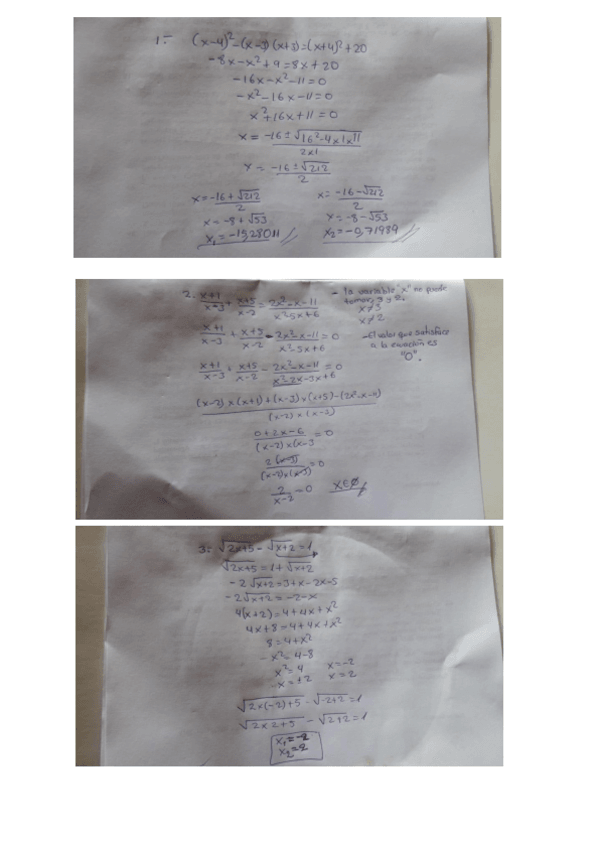 1.- (x-4)²-(x-3)(x+3)=(x+4)²+20
-8x-x²+9=8x+20
-16x-x²-11=0
-x²-16x-11=0
x²+16x+11=0
x=-16±√16²-4x1x11/2x1
x=-16±√212/2
x=-16+√212/2 x=-16-√212/2
x=-8+√53 x=-8-√53
x₁=-15,28011 x₂=-0,71989
2. x+1/x-3+x+5/x-2=2x²-x-11/x²5x+6
- la variable "x" no puede
tomar, 3 y 2.
x≠3
x≠2
x+1/x-3+x+5/x-2-2x²-x-11/x²-5x+6=0
- El valor que satisface
a la ecuación es
"0".
x+1/x-3+x+5/x-2-2x²-x-11/x²-2x-3x+6=0
(x-2)x(x+1)+(x-3)x(x+5)-(2x²-x-11)/(x-2)x(x-3)
0+2x-6/(x-2)x(x-3=0
2(x-3)/(x-2)x(x-3)=0
2/x-2=0 xE∅
3: √2x+5-√x+2=1
√2x+5=1+√x+2
-2√x+2=3+x-2x-5
-2√x+2=-2-x
4(x+2)=4+4x+x²
4x+8=4+4x+x²
8=4+x²
-x²=4-8
x²=4 x=-2
x=±2 x=2
√2x(-2)+5-√-2+2=1
√2x2+5-√2+2=1
x₁=-2
x₂=2